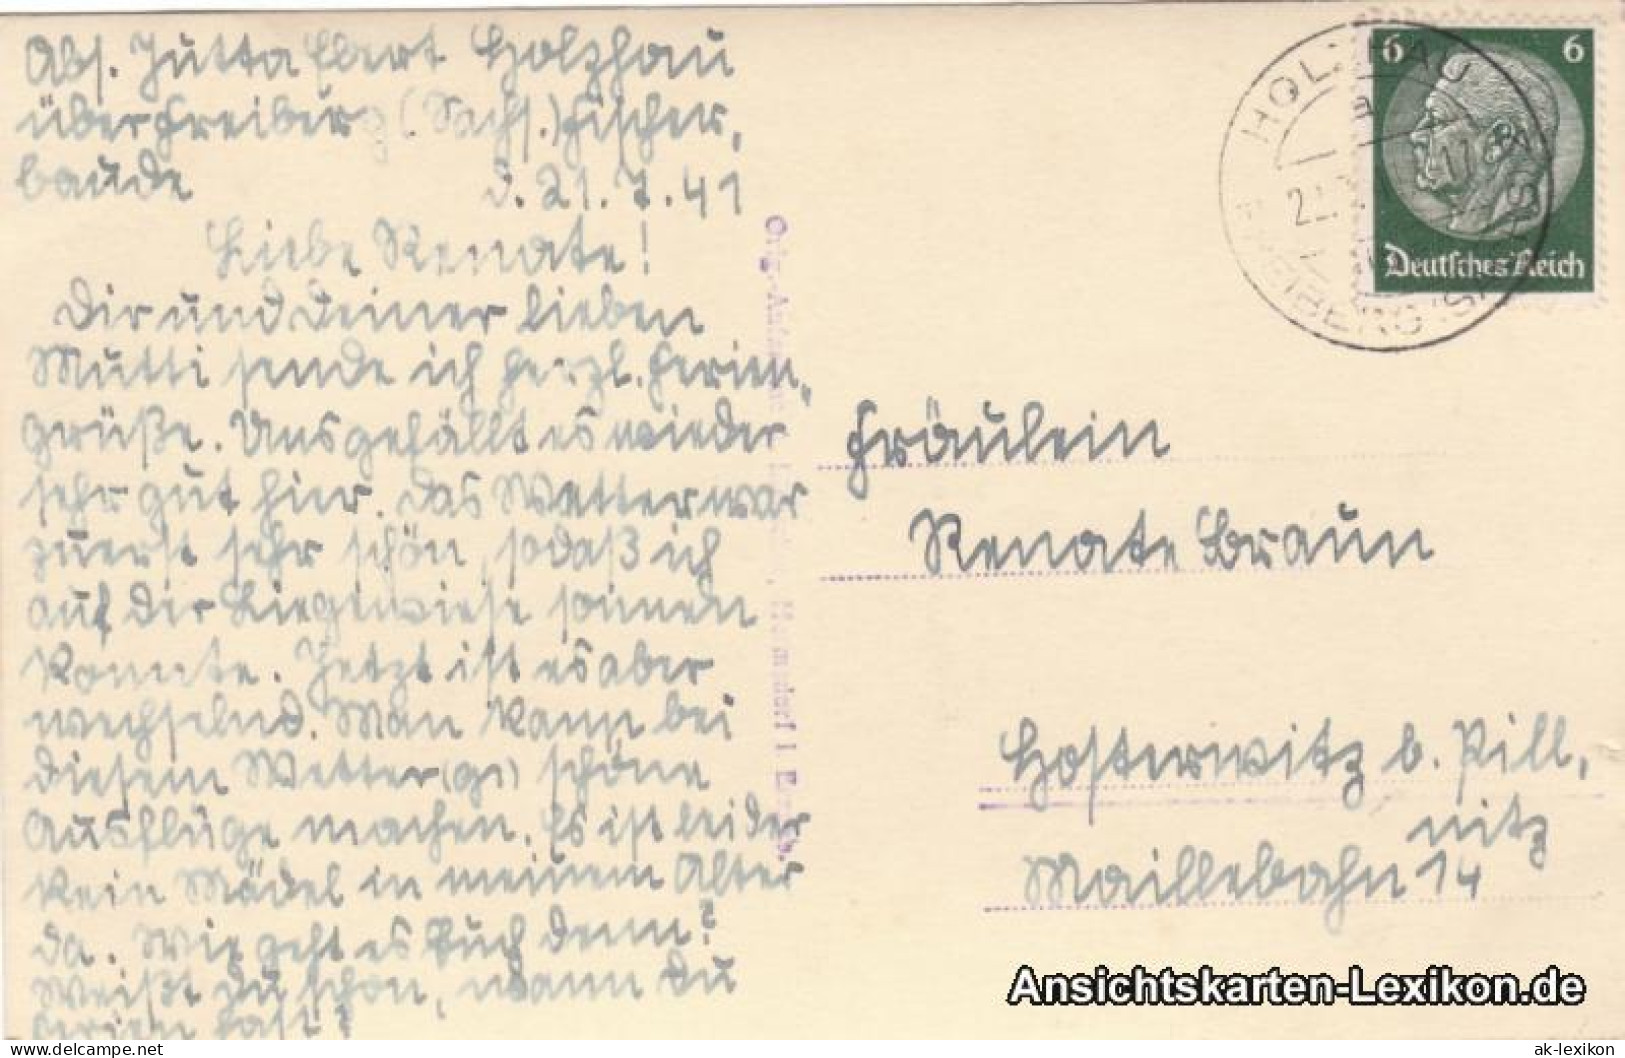 Abs. Jutta Ebert Holzhau
über Freiberg (Sachs.) Fischer,
baude d. 21. 7. 41
Liebe Renate!
Dir und Deiner lieben
Mutti sende ich herzl. Ferien,
grüße. Uns gefällt es wieder
sehr gut hier. Das Wetter war
zuerst sehr schön, sodaß ich
auf der Liegewiese sonnen
konnte. Jetzt ist es aber
wechselnd. Man kann bei
diesem Wetter schöne
Ausflüge machen. Es ist leider
kein Mädel in meinem Alter
da. Wie geht es Euch denn?
Weißt Du schon, wann Du
Ferien hast?
HOLZHAU
FREIBERG (SACHS)
6 6
Deutsches Reich
Fräulein
Renate Braun
Hosterwitz b. Pill,
nitz
Maillebahn 14
Ansichtskarten-Lexikon.de
delcampe.net
ak-lexikon